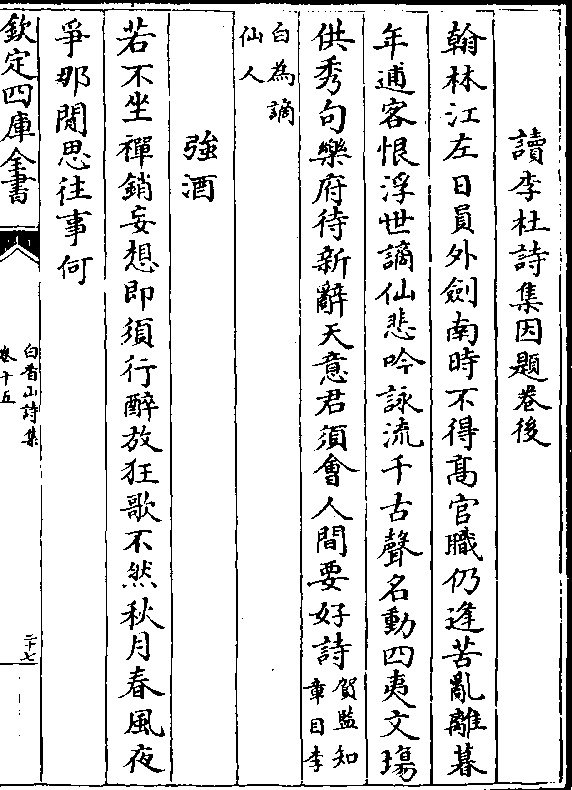 讀李杜詩集因題卷後
翰林江左日員外劍南時不得髙官職仍逢苦亂離暮
年逋客恨浮世謫仙悲吟詠流千古聲名動四夷文塲
供秀句樂府待新辭天意君須會人間要好詩賀監知
章目李
白為謫
仙人
強酒
若不坐禪銷妄想即須行醉放狂歌不然秋月春風夜
爭那閒思往事何
欽定四庫全書
白香山詩集
卷十五
二十七